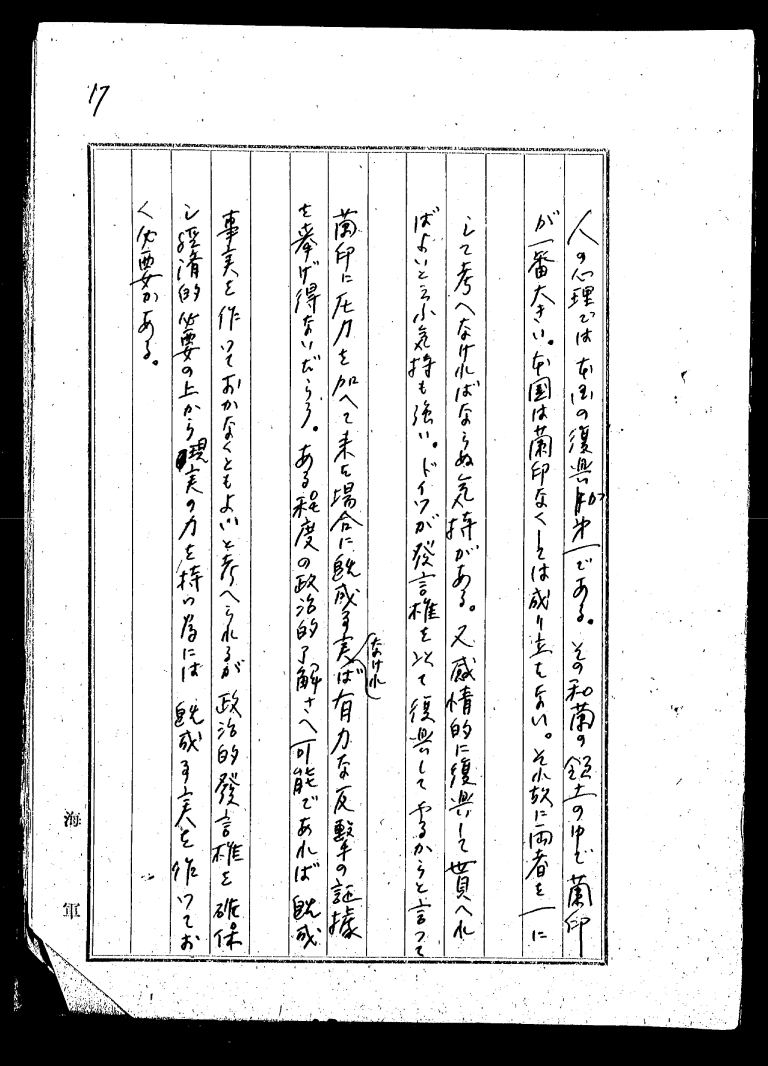 17
人の心理では本国の復興が第一である。その和蘭の領土の中で蘭印
が一番大きい。本国は蘭印なくしては成り立たない。それ故に両者を一に
して考へなければならぬ気持がある。又感情的に復興して貰へれ
ばよいと云ふ気持も強い。ドイツが發言権を以て復興してやるからと言つて
蘭印に圧力を加へて来た場合に既成事実
なけれ
ば有力な反撃の証據
を挙げ得ないだらう。ある程度の政治的了解さへ可能であれば既成
事実を作いておかなくともよいと考へられるが政治的發言権を確保
し経済的必要の上から現実の力を持つ為には既成事実を作いてお
く必要がある。
海軍